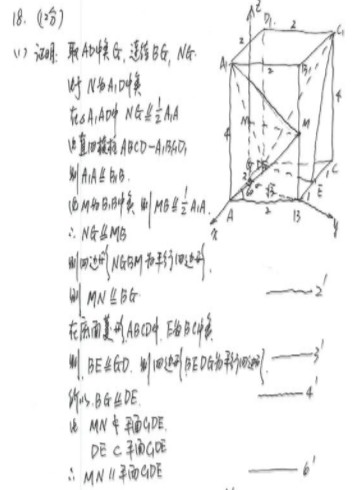 18. (12分)
(1) 证明: 取AD中点G, 连结BG, NG.
由于 N为A₁D中点
在△A₁AD中 NG ∥= ½A₁A
由直四棱柱 ABCD-A₁B₁C₁D₁
则A₁A ∥= B₁B.
由M为B₁B中点 则 MB ∥= ½A₁A.
∴ NG ∥= MB
则四边形NGBM为平行四边形.
则 MN ∥= BG —— 2'
在底面菱形ABCD中, E为BC中点
则 BE ∥= GD. 则四边形BEDG为平行四边形. —— 3'
所以 BG ∥= DE. —— 4'
由 MN ⊄ 平面C₁DE
DE ⊂ 平面C₁DE
∴ MN ∥ 平面C₁DE —— 6'
z
D₁
2
C₁
A₁
2
B₁
4
N
M
4
4
G
D
C
E
60°
√3
A
2
B
x
y